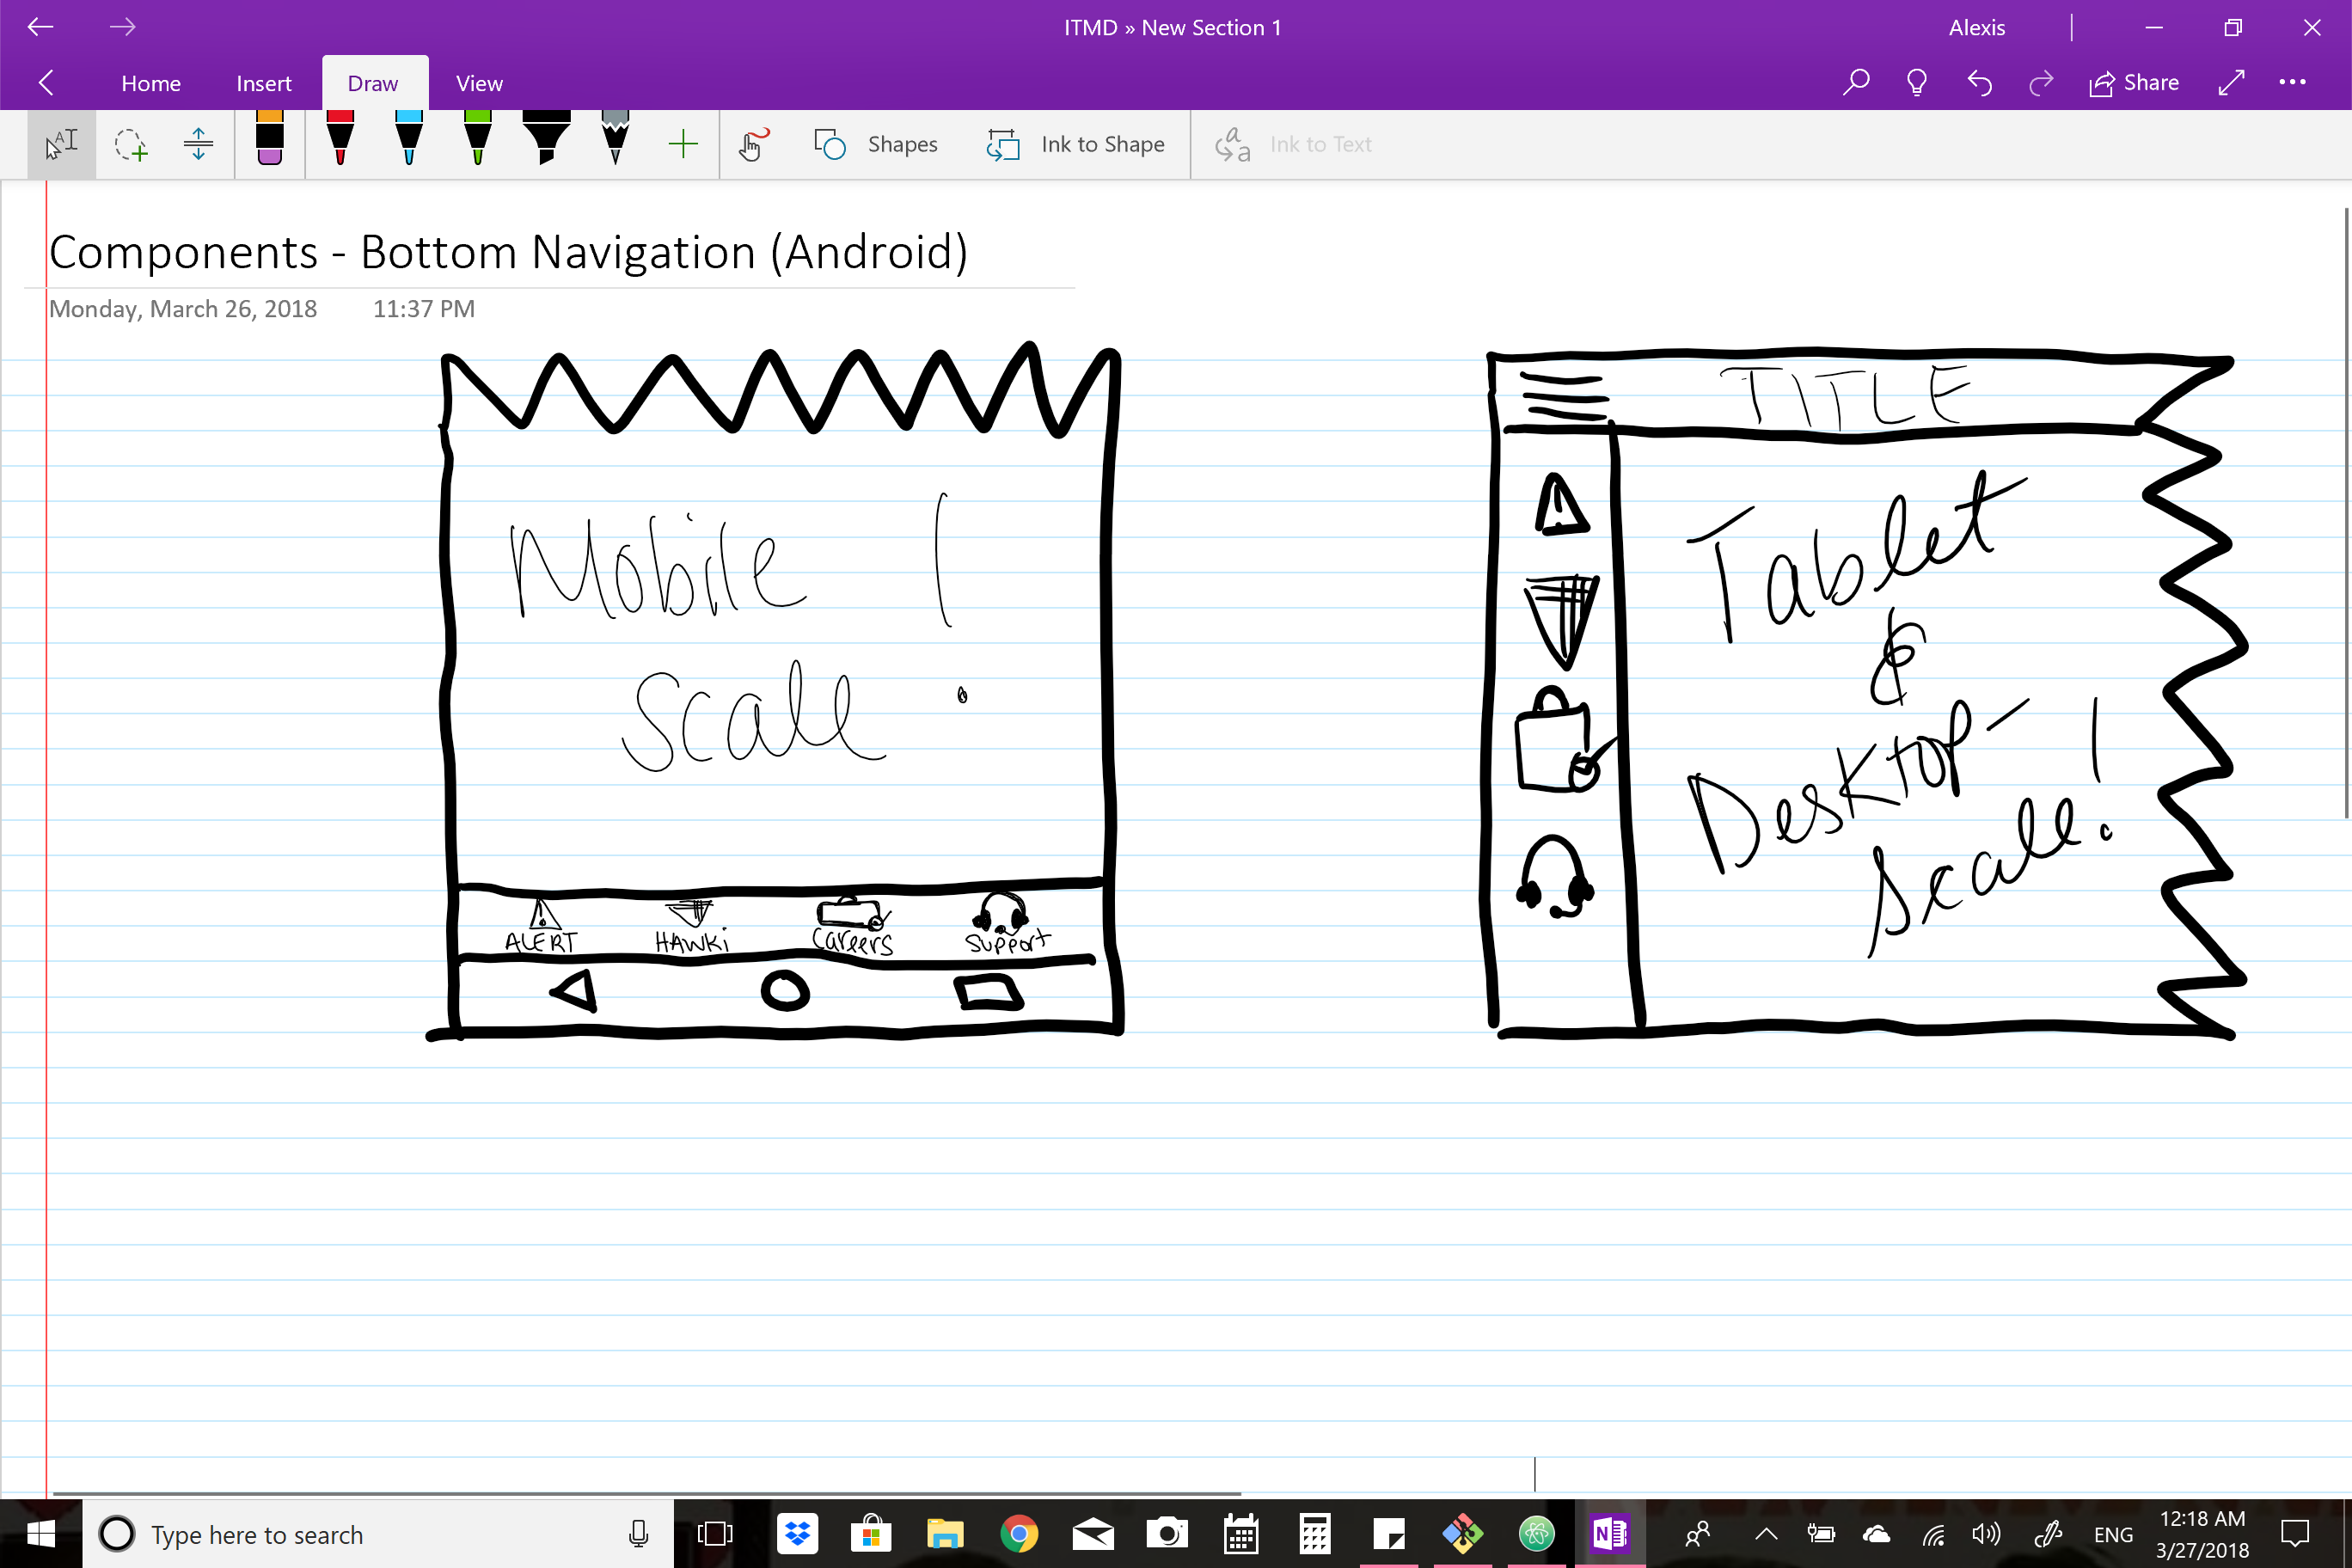 ITMD » New Section 1
Alexis
Home Insert Draw View
Share
Shapes
Ink to Shape
Ink to Text
Components - Bottom Navigation (Android)
Monday, March 26, 2018 11:37 PM
Mobile !
Scale
ALERT HAWKi Careers Support
TITLE
Tablet
&
Desktop-
Scale!
Type here to search
ENG
12:18 AM
3/27/2018